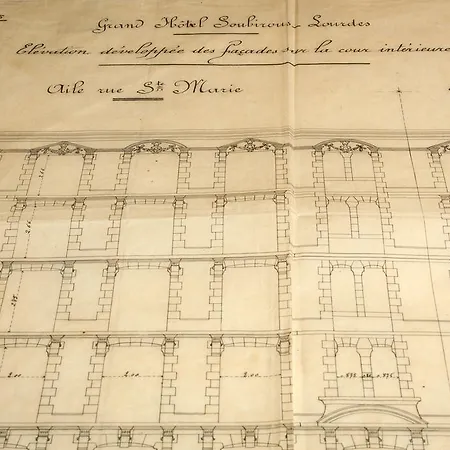 Grand Hôtel Soubirous Lourdes
Elévation développée des façades sur la cour intérieure
Aile rue Ste Marie
2.00 2.00 2.00